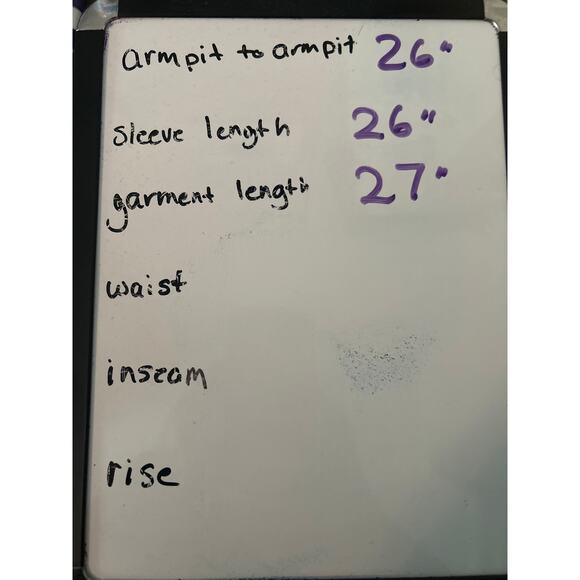 armpit to armpit 26"
sleeve length 26"
garment length 27"
waist
inseam
rise